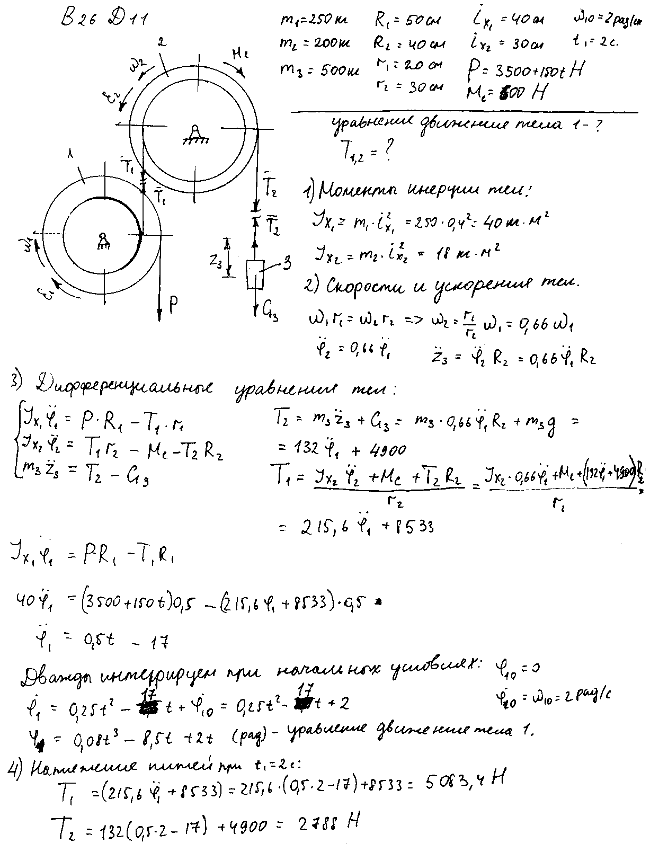 В26 Д11
m₁=250кг R₁=50см i_x₁=40см ω₁₀=2рад/с
m₂=200кг R₂=40см i_x₂=30см t₁=2с.
m₃=500кг r₁=20см P=3500+150t Н
r₂=30см M_c=600 Н
уравнение движения тела 1-?
T₁,₂=?
1) Моменты инерции тел:
J_x₁=m₁·i²_x₁=250·0,4²=40кг·м²
J_x₂=m₂·i²_x₂=18кг·м²
2) Скорости и ускорения тел.
ω₁r₁=ω₂r₂ => ω₂=r₁/r₂ ω₁=0,66ω₁
φ̈₂=0,66φ̈₁ z̈₃=φ̈₂R₂=0,66φ̈₁R₂
2
ω₂
M_c
ε₂
1
T̄₁
T̄₁
T̄₂
T̄₂
z₃
3
G₃
ω₁
ε₁
P
3) Дифференциальные уравнения тел:
J_x₁φ̈₁=P·R₁-T₁·r₁
J_x₂φ̈₂=T₁r₂-M_c-T₂R₂
m₃z̈₃=T₂-G₃
T₂=m₃z̈₃+G₃=m₃·0,66φ̈₁R₂+m₃g=
=132φ̈₁+4900
T₁=(J_x₂φ̈₂+M_c+T₂R₂)/r₂=(J_x₂·0,66φ̈₁+M_c+(132φ̈₁+4900)R₂)/r₂=
=215,6φ̈₁+8533
J_x₁φ̈₁=PR₁-T₁R₁
40φ̈₁=(3500+150t)0,5-(215,6φ̈₁+8533)·0,5
φ̈₁=0,5t-17
Дважды интегрируем при начальных условиях: φ₁₀=0
φ̇₁=0,25t²-17t+φ̇₁₀=0,25t²-17t+2 φ̇₁₀=ω₁₀=2рад/с
φ₁=0,08t³-8,5t+2t (рад)-уравнение движения тела 1.
4) Натяжение нитей при t₁=2с:
T₁=(215,6φ̈₁+8533)=215,6·(0,5·2-17)+8533=5083,4Н
T₂=132(0,5·2-17)+4900=2788 Н